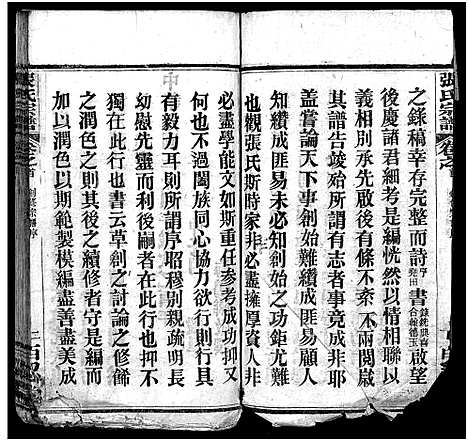 張氏宗譜
卷之首
之錄稿幸存完整而詩亨堯田書鏡銑典喜合維德玉啟望
後慶諸君細考是編恍然以情相聯以
義相別承先啟後有條不紊不兩閱歲
其譜告竣始所謂有志者事竟成非歟
蓋嘗論天下事創始難纘成匪易顧人
知纘成匪易未必知創始之功鉅尤難
也觀張氏斯時家非必盡擁厚資人非
必盡學能文如斯重任參考成功抑又
何哉亦不過闔族齊心欲行則行具
有毅力耳則所謂序昭穆別親疏明長
幼慰先靈而利後嗣者在此行也抑不
獨在此行也書云草創之討論之修飾
之潤色之則其後之續修者更當何如
加以潤色以期範製模編盡善盡美成
張氏宗譜
卷之首